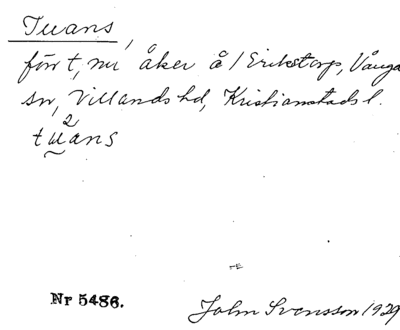 Tuans,
förr t, nu åker å / Erikstorp, Vånga
sn, Villands hd, Kristianstads l.
2
tuans
TE
Nr 5486.
John Svensson 1929